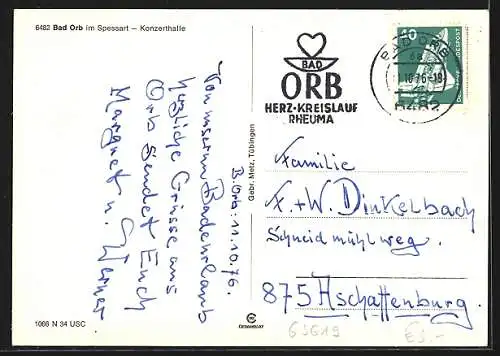 6482 Bad Orb im Spessart – Konzerthalle
B. Orb: 11.10.76.
Von unserm Badeurlaub
herzliche Grüsse aus
Orb sendet Euch
Margret u. Werner
1066 N 34 USC
Gebr. Metz, Tübingen
BAD
ORB
HERZ-KREISLAUF
RHEUMA
BAD ORB
.10.76-18
6482
40
DEUTSCHE BUNDESPOST
Familie
K. + W. Dinkelbach
Schneidmühlweg.
875 Aschaffenburg.
63619
€3.-